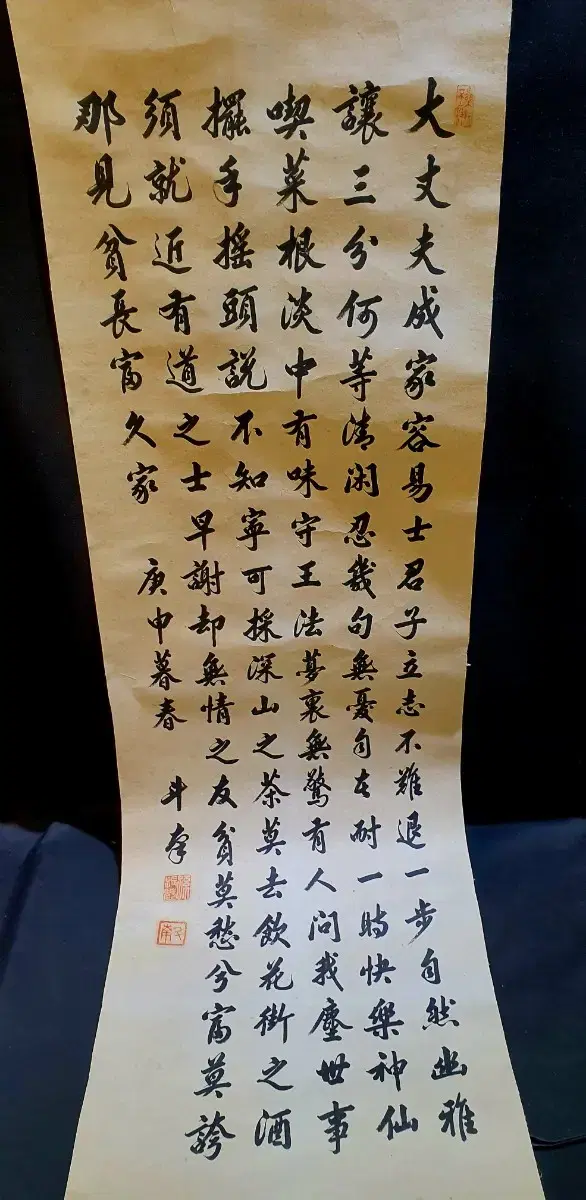 大丈夫成家容易士君子立志不難退一步自然幽雅
讓三分何等清闲忍幾句無憂自在耐一時快樂神仙
喫菜根淡中有味守王法夢裏無驚有人问我塵世事
擺手摇頭説不知寧可採深山之茶莫去飲花街之酒
須就近有道之士早謝却無情之友貧莫愁兮富莫誇
那見貧長富久家
庚申暮春